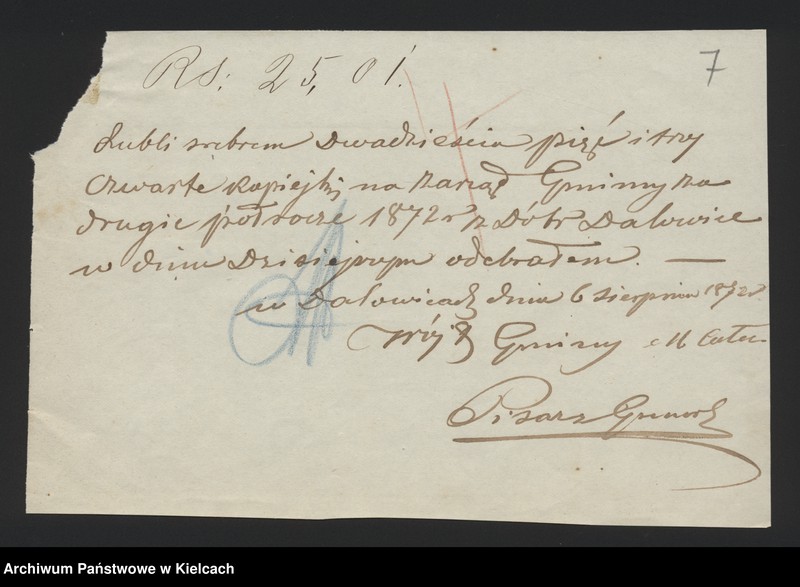 Rs: 25, 01.
7
Rubli srebrem Dwadzieścia pięć i trzy
czwarte kopiejki na zarząd Gminy za
drugie półrocze 1872 r z Dóbr Dalowice
w dniu Dzisiejszym odebrałem. —
w Dalowicach dnia 6 Sierpnia 1872 r
Wójt Gminy
Pisarz
Archiwum Państwowe w Kielcach